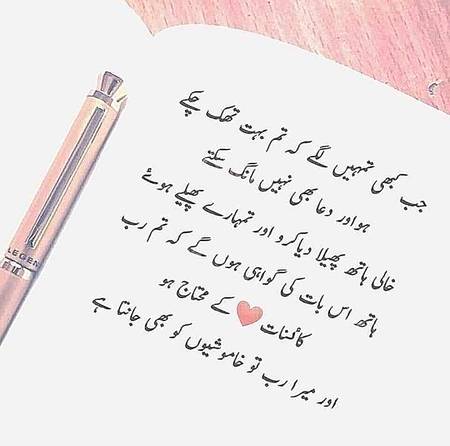 جب کبھی تمہیں لگے کہ تم بہت تھک چکے
ہو اور دعا بھی نہیں مانگ سکتے
خالی ہاتھ پھیلا دیا کرو اور تمہارے پھیلے ہوئے
ہاتھ اس بات کی گواہی ہوں گے کہ تم رب
کائنات ❤ کے محتاج ہو
اور میرا رب تو خاموشیوں کو بھی جانتا ہے
LEGEN